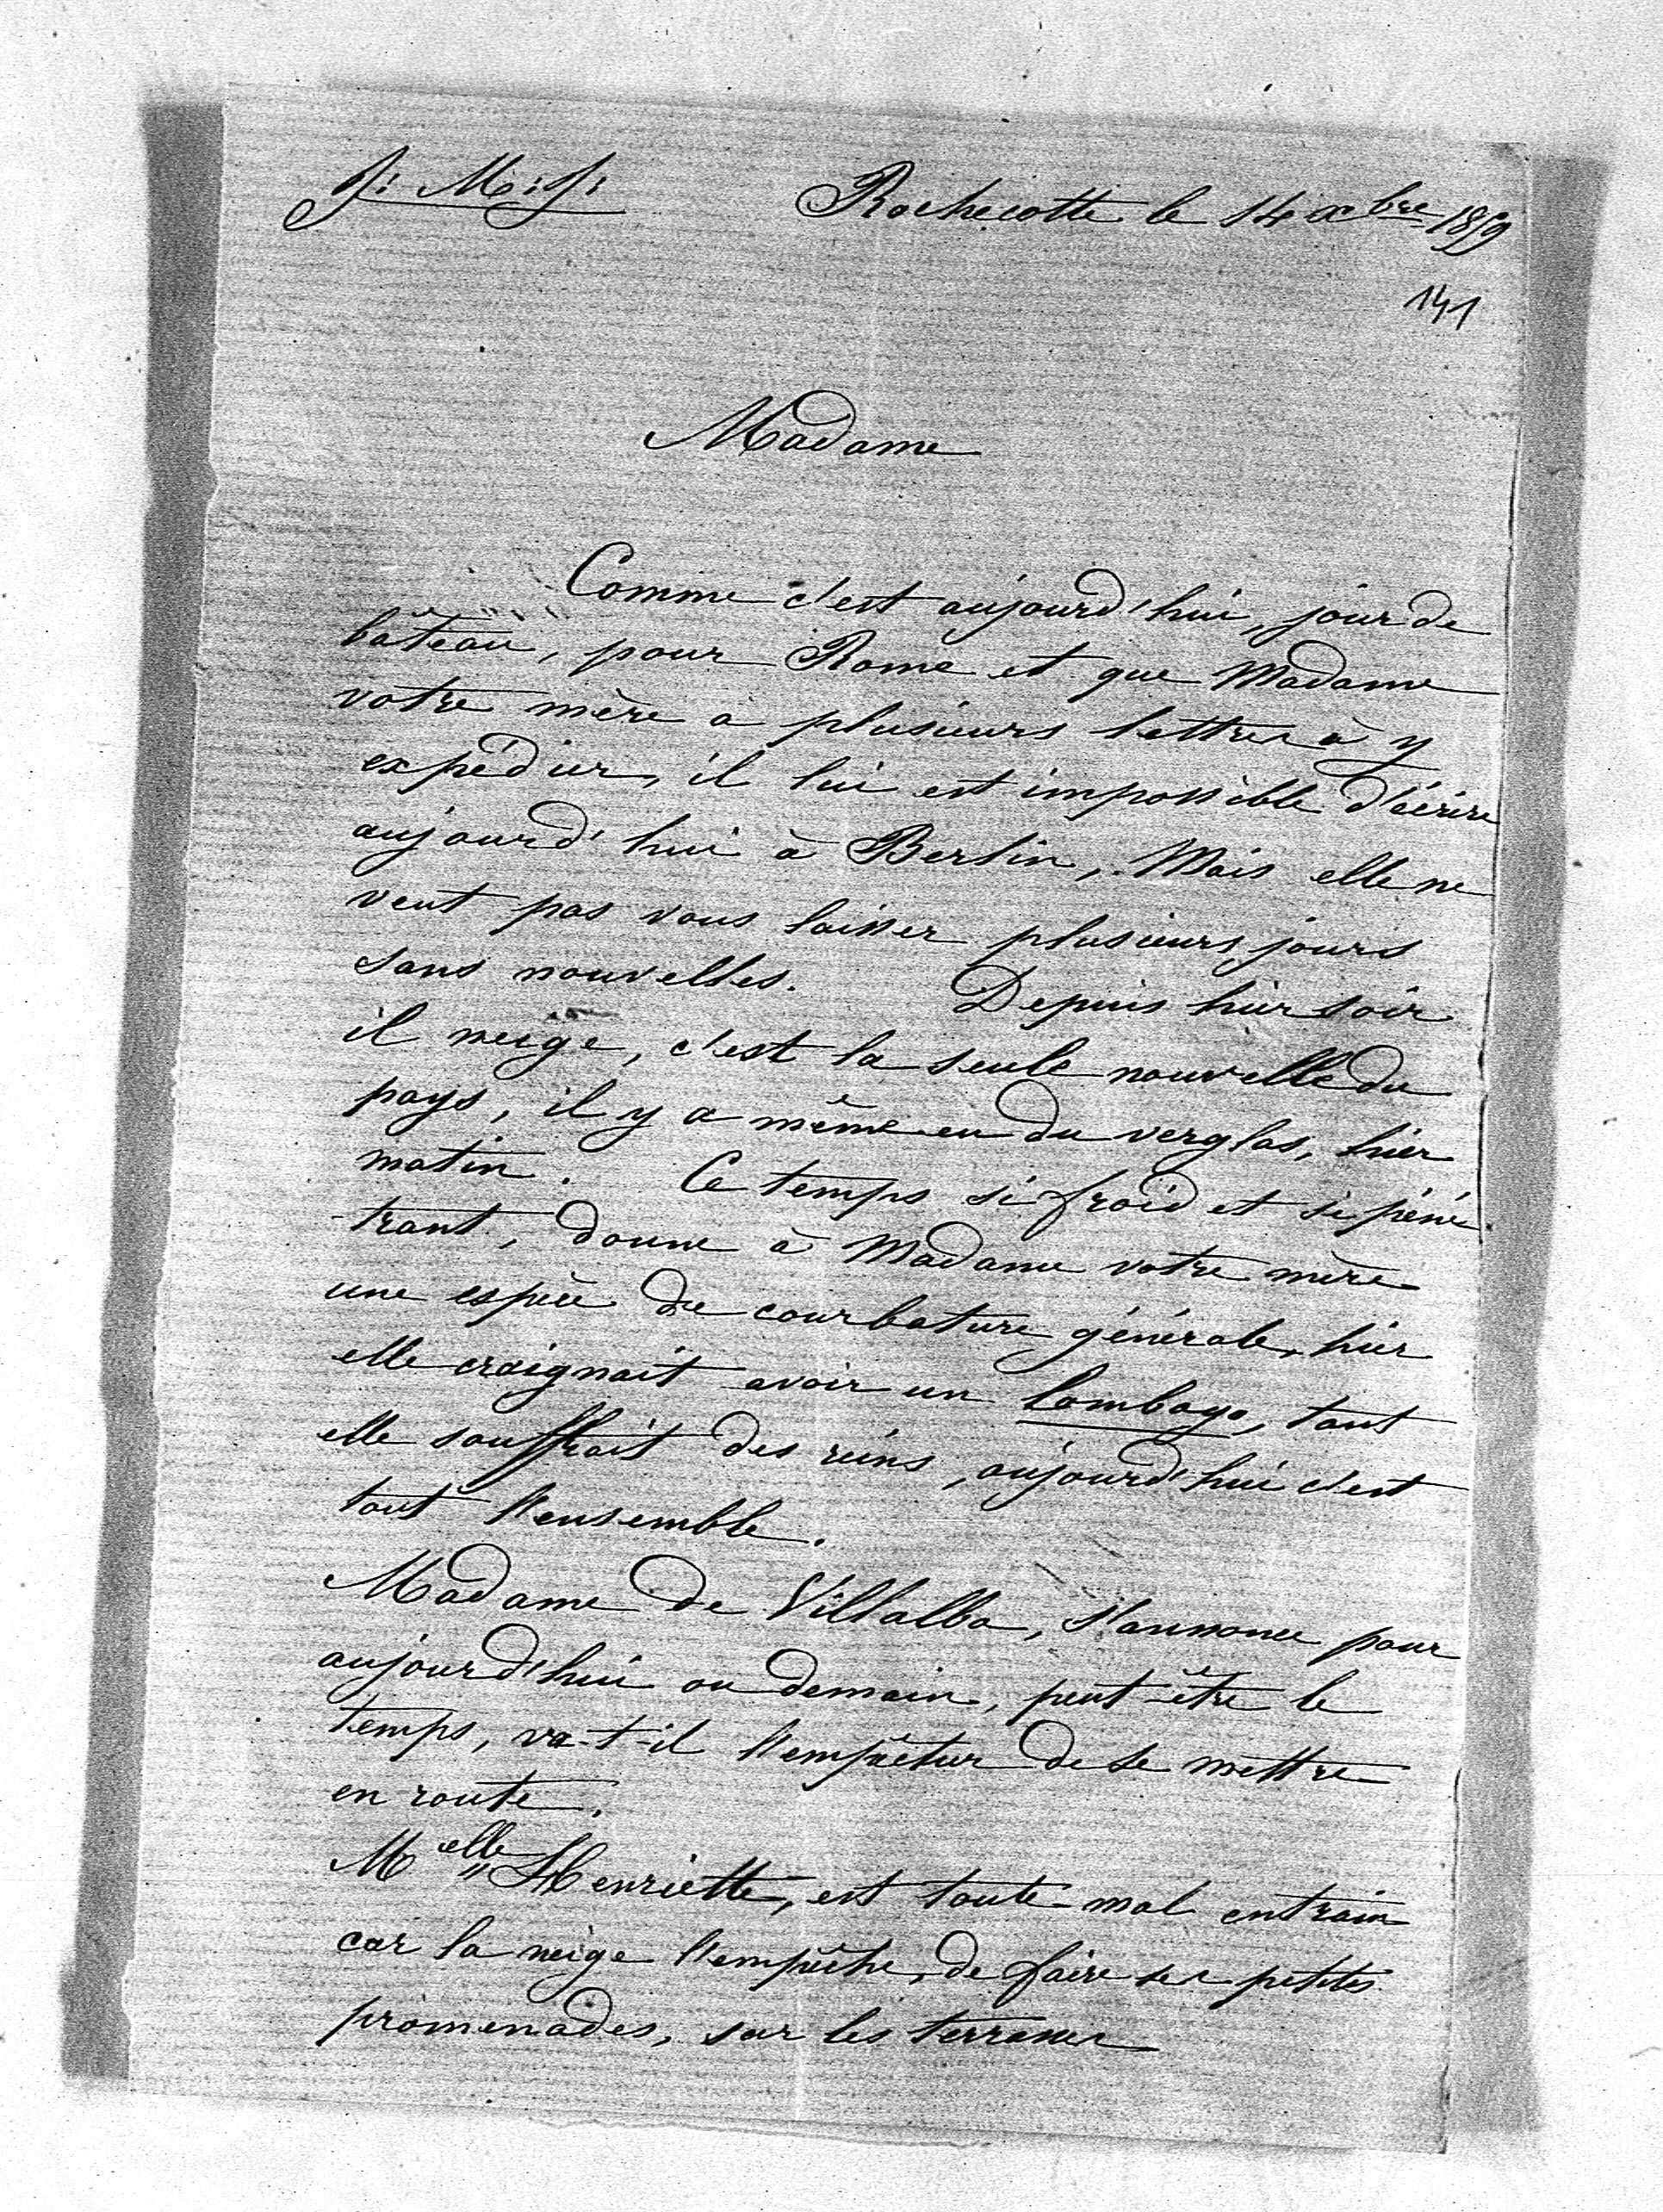 J: M: J:
Rochecotte le 14 xbre 1879
141
Madame
Comme c'est aujourd'hui, jour de
bâteau, pour Rome et que Madame
votre mère a plusieurs lettres à y
expédier, il lui est impossible d'écrire
aujourd'hui à Berlin, Mais elle ne
veut pas vous laisser plusieurs jours
sans nouvelles. Depuis hier soir
il neige, c'est la seule nouvelle du
pays, il y a même eu du verglas, hier
matin. Ce temps si froid et si péné
-trant, donne à Madame votre mère
une espèce de courbature générale, hier
elle craignait avoir un lombago, tant
elle souffrait des reins, aujourd'hui c'est
tout l'ensemble.
Madame de Villalba, s'annonce pour
aujourd'hui ou demain, peut-être le
temps, va-t-il l'empêcher de se mettre
en route.
Melle Henriette, est toute mal entrain
car la neige l'empêche, de faire ses petites
promenades, sur les terrasses